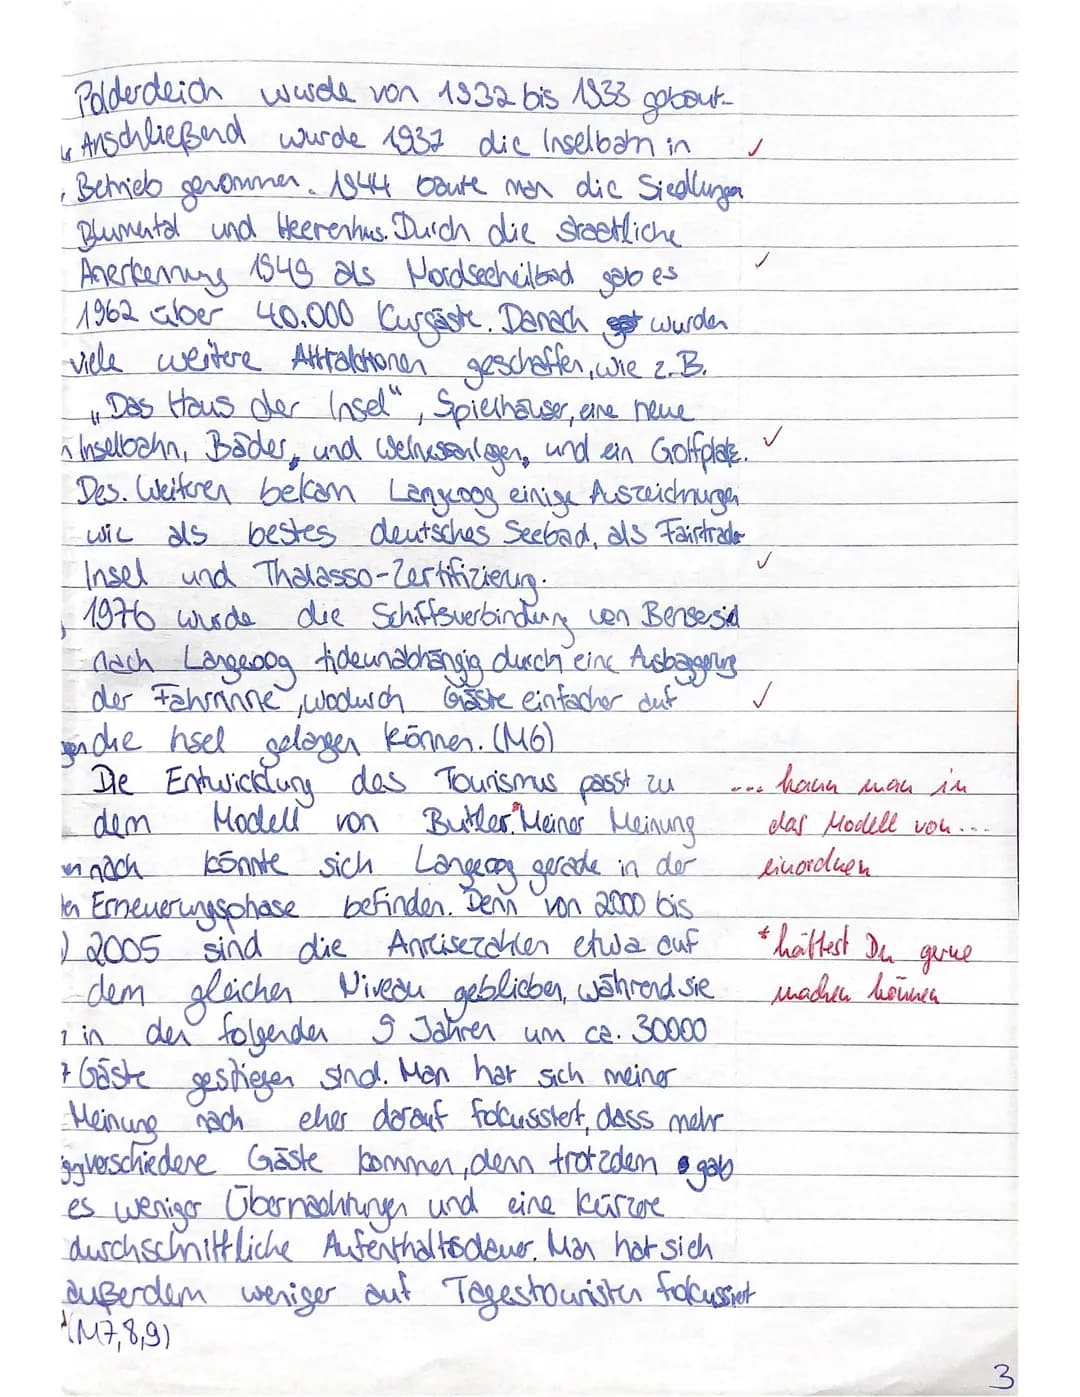 Polderdeich wurde von 1932 bis 1933 gebaut.
Anschließend wurde 1937 die Inselbahn in ✓
Betrieb genommen. 1944 baute man die Siedlungen
Blumental und Heerenhus. Durch die staatliche
Anerkennung 1949 als Nordseeheilbad gab es ✓
1962 über 40.000 Kurgäste. Danach wurden
viele weitere Attraktionen geschaffen, wie z.B.
„Das Haus der Insel", Spielhäuser, eine neue
Inselbahn, Bäder, und Welnessanlagen, und ein Golfplatz. ✓
Des. Weiteren bekam Langeoog einige Auszeichnungen
wie als bestes deutsches Seebad, als Fairtrade
Insel und Thalasso-Zertifizierung. ✓
1976 wurde die Schiffsverbindung von Bensersiel
nach Langeoog tideunabhängig durch eine Ausbaggerung
der Fahrrinne, wodurch Gäste einfacher auf ✓
die Insel gelangen können. (M6)
Die Entwicklung des Tourismus passt zu ... kann man in
dem Modell von Butler.* Meiner Meinung das Modell von...
nach könnte sich Langeoog gerade in der einordnen
Erneuerungsphase befinden. Denn von 2000 bis
2005 sind die Anreisezahlen etwa auf * hättest Du gerne
dem gleichen Niveau geblieben, während sie machen können
in den folgenden 9 Jahren um ca. 30000
Gäste gestiegen sind. Man hat sich meiner
Meinung nach eher darauf fokussiert, dass mehr
verschiedene Gäste kommen, denn trotzdem gab
es weniger Übernachtungen und eine kürzere
durchschnittliche Aufenthaltsdauer. Man hat sich
außerdem weniger auf Tagestouristen fokussiert
(M7,8,9)
3